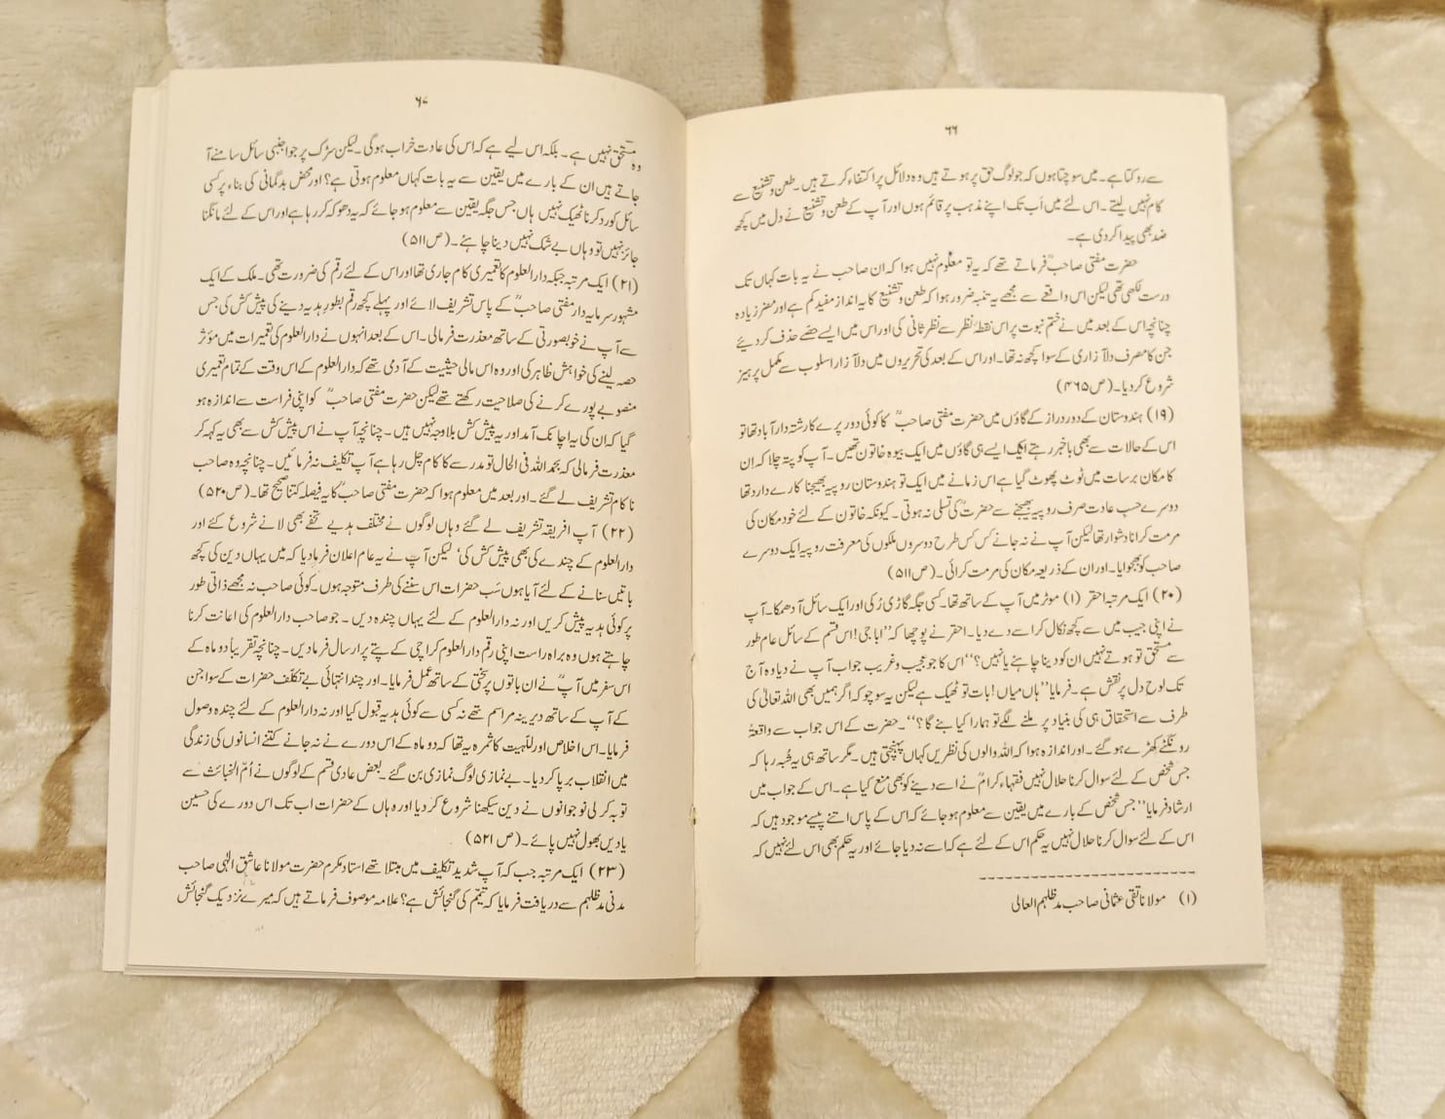 ۶۶
سے روکتا ہے۔ میں سوچتا ہوں کہ جو لوگ حق پر ہوتے ہیں وہ دلائل پر اکتفاء کرتے ہیں۔ طعن و تشنیع سے
کام نہیں لیتے۔ اس لئے میں اَب تک اپنے مذہب پر قائم ہوں اور آپ کے طعن و تشنیع نے دل میں کچھ
ضد بھی پیدا کردی ہے۔
حضرت مفتی صاحبؒ فرماتے تھے کہ یہ تو معلُوم نہیں ہوا کہ ان صاحب نے یہ بات کہاں تک
درست لکھی تھی لیکن اس واقعے سے مجھے یہ تنبہ ضرور ہوا کہ طعن و تشنیع کا یہ انداز مفید کم ہے اور مضر زیادہ
چنانچہ اس کے بعد میں نے ختم نبوت پر اس نقطۂ نظر سے نظر ثانی کی اور اس میں ایسے حصّے حذف کر دئیے
جن کا مصرف دلآزاری کے سوا کچھ نہ تھا۔ اور اس کے بعد کی تحریروں میں دلآزار اسلوب سے مکمل پرہیز
شروع کردیا۔ (ص ۴۶۵)
(۱۹) ہندوستان کے دور دراز کے گاؤں میں حضرت مفتی صاحبؒ کا کوئی دور پرے کا رشتہ دار آباد تھا تو
اس کے حالات سے بھی باخبر رہتے ایک ایسے ہی گاؤں میں ایک بیوہ خاتون تھیں۔ آپ کو پتہ چلا کہ اِن
کا مکان برسات میں ٹوٹ پھوٹ گیا ہے اس زمانے میں ایک تو ہندوستان روپیہ بھیجنا کارے دارد تھا
دوسرے حسب عادت صرف روپیہ بھیجنے سے حضرتؒ کی تسلی نہ ہوتی۔ کیونکہ خاتون کے لئے خود مکان کی
مرمت کرانا دشوار تھا لیکن آپ نے نہ جانے کس کس طرح دوسروں ملکوں کی معرفت روپیہ ایک دوسرے
صاحب کو بھجوایا۔ اور ان کے ذریعہ مکان کی مرمت کرائی۔ (ص ۵۱۱)
(۲۰) ایک مرتبہ احقر (۱) موٹر میں آپ کے ساتھ تھا۔ کسی جگہ گاڑی رُکی اور ایک سائل آ دھمکا۔ آپ
نے اپنی جیب میں سے کچھ نکال کر اسے دے دیا۔ احقر نے پوچھا کہ "ابا جی! اس قسم کے سائل عام طور
سے مستحق تو ہوتے نہیں ان کو دینا چاہئے یا نہیں؟" اس کا جو عجیب و غریب جواب آپ نے دیا وہ آج
تک لوح دل پر نقش ہے۔ فرمایا "ہاں میاں! بات تو ٹھیک ہے لیکن یہ سوچو کہ اگر ہمیں بھی اللہ تعالیٰ کی
طرف سے استحقاق ہی کی بنیاد پر ملنے لگے تو ہمارا کیا بنے گا؟"۔ حضرت کے اس جواب سے واقعۃً
رونگٹے کھڑے ہو گئے۔ اور اندازہ ہوا کہ اللہ والوں کی نظریں کہاں پہنچتی ہیں۔ مگر ساتھ ہی یہ شُبہ رہا کہ
جس شخص کے لئے سوال کرنا حلال نہیں فقہاء کرامؒ نے اسے دینے کو بھی منع کیا ہے۔ اس کے جواب میں
ارشاد فرمایا "جس شخص کے بارے میں یقین سے معلوم ہو جائے کہ اس کے پاس اتنے پیسے موجود ہیں کہ
اس کے لئے سوال کرنا حلال نہیں یہ حکم اس کے لئے ہے کہ اسے نہ دیا جائے اور یہ حکم بھی اس لئے نہیں کہ
(۱) مولانا تقی عثمانی صاحب مدظلہم العالی
۶۷
وہ مستحق نہیں ہے۔ بلکہ اس لیے ہے کہ اس کی عادت خراب ہوگی۔ لیکن سڑک پر جو اجنبی سائل سامنے آ
جاتے ہیں ان کے بارے میں یقین سے یہ بات کہاں معلوم ہوتی ہے؟ اور محض بدگمانی کی بناء پر کسی
سائل کو رد کرنا ٹھیک نہیں ہاں جس جگہ یقین سے معلوم ہو جائے کہ یہ دھوکہ کر رہا ہے اور اس کے لئے مانگنا
جائز نہیں تو وہاں بے شک نہیں دینا چاہئے۔ (ص ۵۱۱)
(۲۱) ایک مرتبہ جبکہ دارالعلوم کا تعمیری کام جاری تھا اور اس کے لئے رقم کی ضرورت تھی۔ ملک کے ایک
مشہور سرمایہ دار مفتی صاحبؒ کے پاس تشریف لائے اور پہلے کچھ رقم بطور ہدیہ دینے کی پیش کش کی جس
سے آپ نے خوبصورتی کے ساتھ معذرت فرمالی۔ اس کے بعد انہوں نے دارالعلوم کی تعمیرات میں مؤثر
حصہ لینے کی خواہش ظاہر کی اور وہ اس مالی حیثیت کے آدمی تھے کہ دارالعلوم کے اس وقت کے تمام تعمیری
منصوبے پورے کرنے کی صلاحیت رکھتے تھے لیکن حضرت مفتی صاحبؒ کو اپنی فراست سے اندازہ ہو
گیا کہ ان کی یہ اچانک آمد اور یہ پیش کش بلاوجہ نہیں ہیں۔ چنانچہ آپ نے اس پیش کش سے بھی یہ کہہ کر
معذرت فرمالی کہ بحمد اللہ فی الحال تو مدرسے کا کام چل رہا ہے آپ تکلیف نہ فرمائیں۔ چنانچہ وہ صاحب
ناکام تشریف لے گئے۔ اور بعد میں معلوم ہوا کہ حضرت مفتی صاحبؒ کا یہ فیصلہ کتنا صحیح تھا۔ (ص ۵۲۰)
(۲۲) آپ افریقہ تشریف لے گئے وہاں لوگوں نے مختلف ہدیے تحفے بھی لانے شروع کئے اور
دارالعلوم کے چندے کی بھی پیش کش کی' لیکن آپؒ نے یہ عام اعلان فرمادیا کہ میں یہاں دین کی کچھ
باتیں سنانے کے لئے آیا ہوں سَب حضرات اس سننے کی طرف متوجہ ہوں۔ کوئی صاحب نہ مجھے ذاتی طور
پر کوئی ہدیہ پیش کریں اور نہ دارالعلوم کے لئے یہاں چندہ دیں۔ جو صاحب دارالعلوم کی اعانت کرنا
چاہتے ہوں وہ براہ راست اپنی رقم دارالعلوم کراچی کے پتے پر ارسال فرمادیں۔ چنانچہ تقریباً دو ماہ کے
اس سفر میں آپؒ نے ان باتوں پر سختی کے ساتھ عمل فرمایا۔ اور چند انتہائی بے تکلّف حضرات کے سوا جن
کے آپ کے ساتھ دیرینہ مراسم تھے نہ کسی سے کوئی ہدیہ قبول کیا اور نہ دارالعلوم کے لئے چندہ وصول
فرمایا۔ اس اخلاص اور للّٰہیت کا ثمرہ یہ تھا کہ دو ماہ کے اس دورے نے نہ جانے کتنے انسانوں کی زندگی
میں انقلاب برپا کردیا۔ بے نمازی لوگ نمازی بن گئے۔ بعض عادی قسم کے لوگوں نے اُمّ الخبائث سے
توبہ کرلی نوجوانوں نے دین سیکھنا شروع کردیا اور وہاں کے حضرات اب تک اس دورے کی حسین
یادیں بھول نہیں پائے۔ (ص ۵۲۱)
(۲۳) ایک مرتبہ جب کہ آپ شدید تکلیف میں مبتلا تھے استاد مکرم حضرت مولانا عاشق الٰہی صاحب
مدنی مدظلہم سے دریافت فرمایا کہ تیمم کی گنجائش ہے؟ علامہ موصوف فرماتے ہیں کہ میرے نزدیک گنجائش